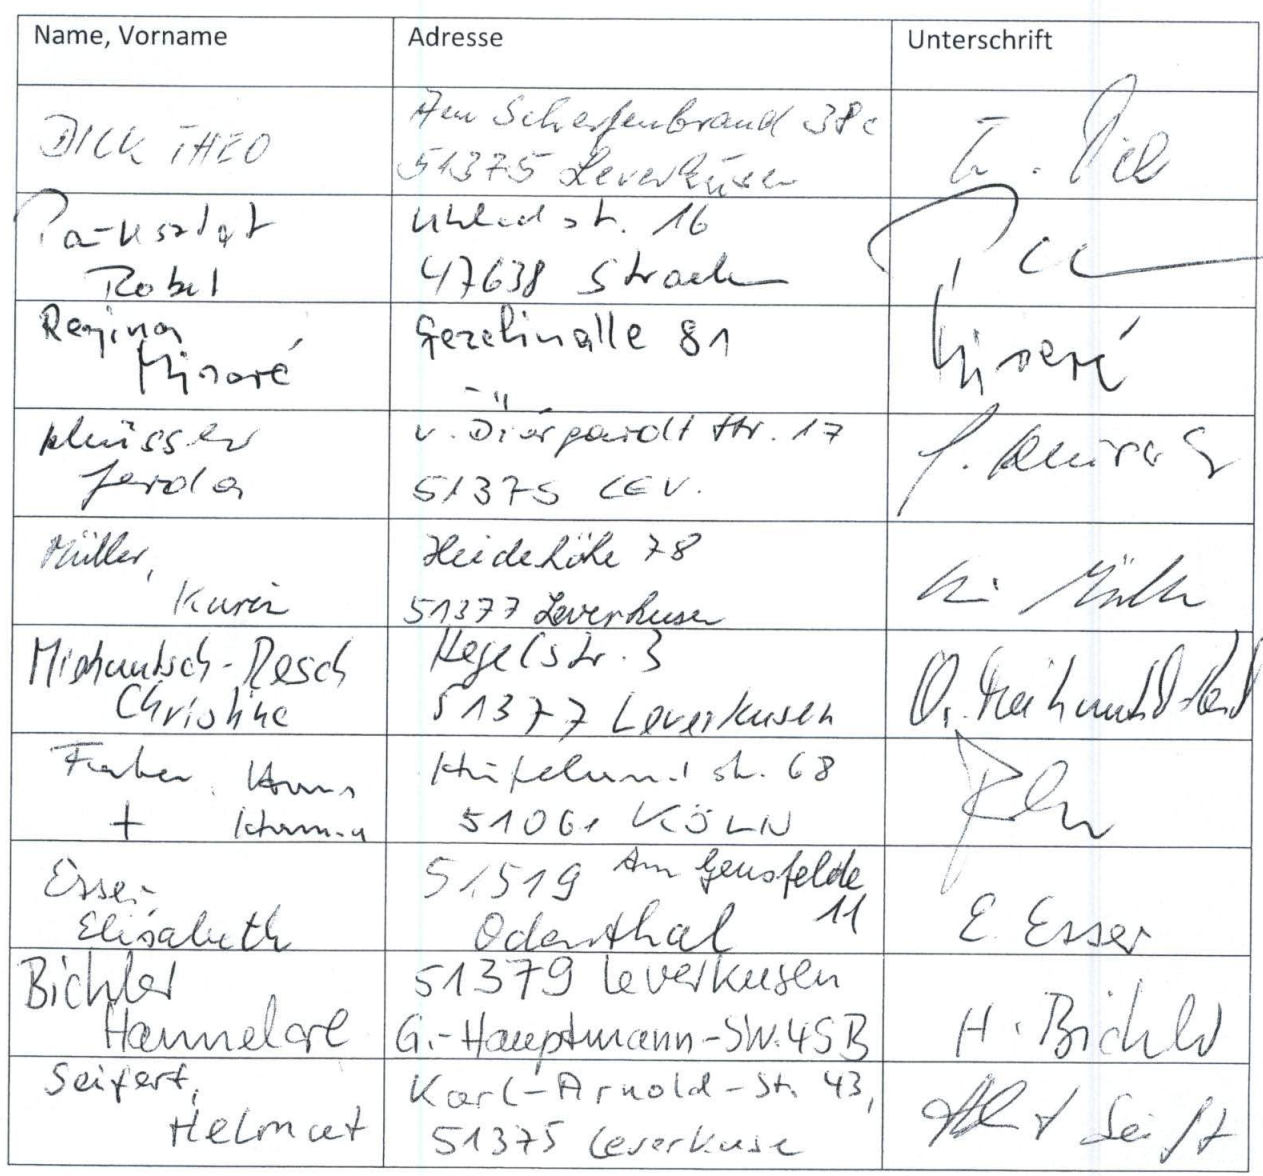 Name, Vorname Adresse Unterschrift
DICK THEO
Am Scherfenbrand 38c
51375 Leverkusen
T. Dick
Robert
Uhlandstr. 16
47638 Straelen
Regina
Misoré
Gezelinallee 81
Misoré
Gerda
v. Diergardt Str. 17
51375 LEV.
Müller,
Karin
Heidehöhe 78
51377 Leverkusen
Müller
Christine
Hegelstr. 3
51377 Leverkusen
Faber, Hanns
+
Hufelandstr. 68
51061 KÖLN
Esser
Elisabeth
51519 Am Gensfelde
Odenthal 11
E. Esser
Bichler
Hannelore
51379 Leverkusen
G.-Hauptmann-Str. 45B
H. Bichler
Seifert,
Helmut
Karl-Arnold-Str. 43,
51375 Leverkusen
Seifert